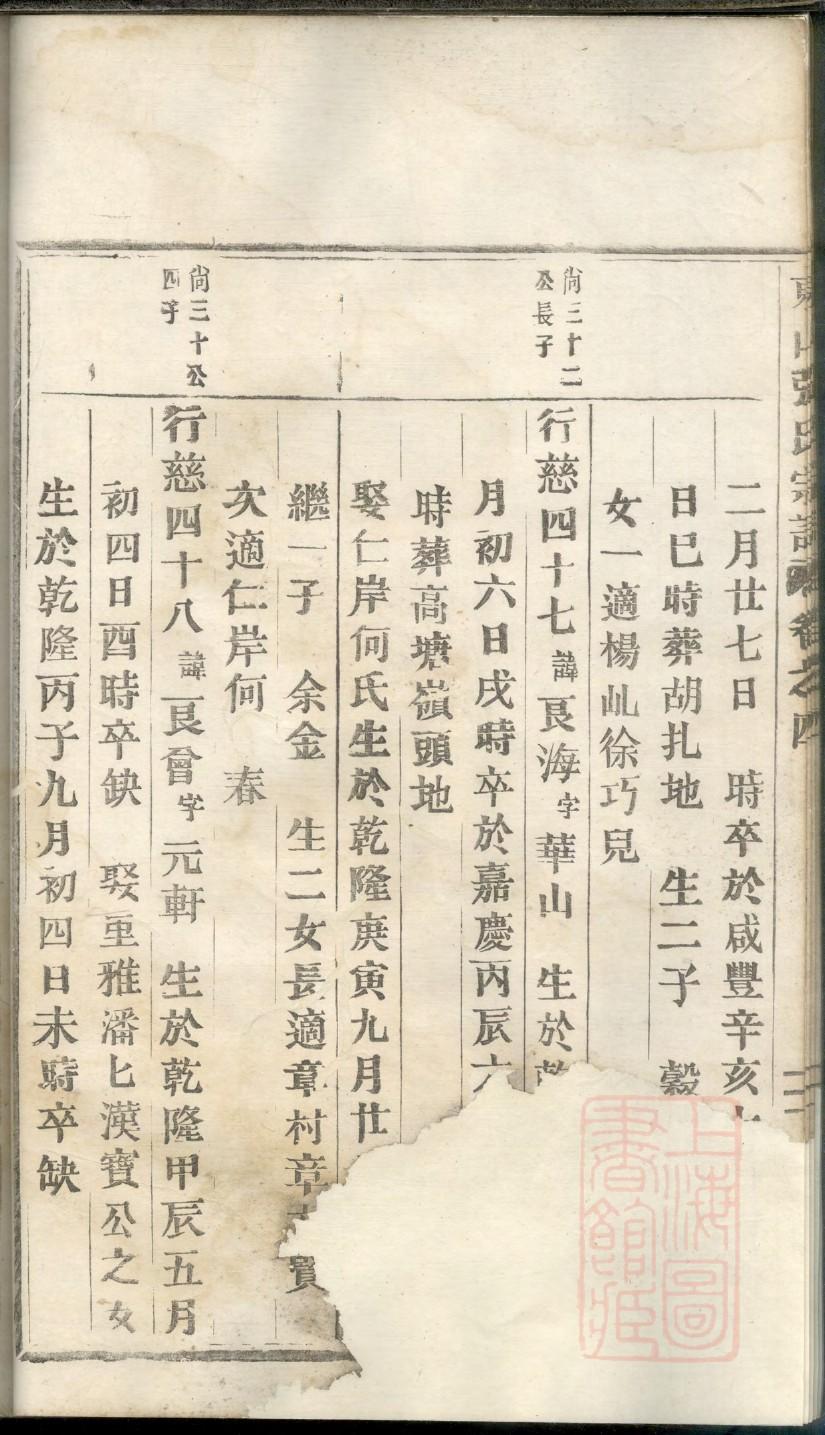 張氏宗譜 卷之四
二月廿七日 時卒於咸豐辛亥
日巳時葬胡扎地 生二子 穀
女一適楊乢徐巧兒
尚三十二
公長子
行慈四十七 諱 艮海 字 華山 生於
月初六日戌時卒於嘉慶丙辰六
時葬高塘嶺頭地
娶仁岸何氏生於乾隆庚寅九月廿
繼一子 余金 生二女長適章村章 寶
次適仁岸何 春
尚三十公
四子
行慈四十八 諱 艮曾 字 元軒 生於乾隆甲辰五月
初四日酉時卒缺 娶重雅潘七漢寶公之女
生於乾隆丙子九月初四日未時卒缺
上海圖
書館藏